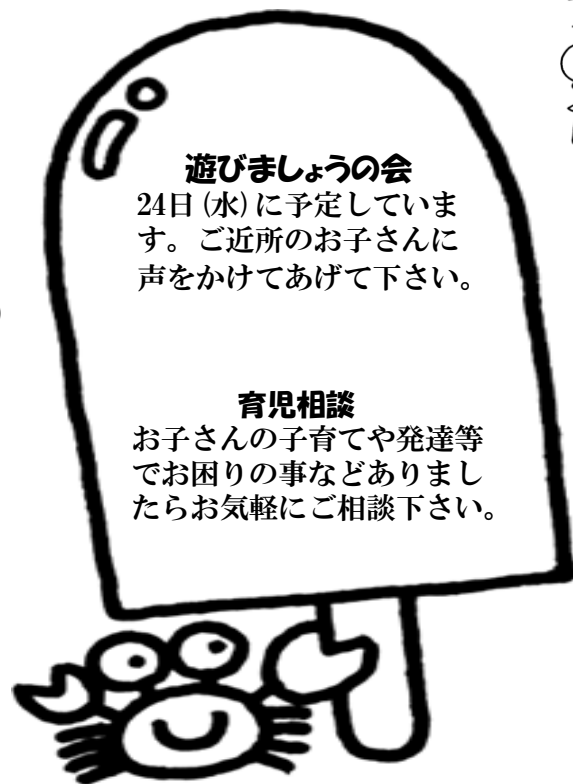 遊びましょうの会
24日(水)に予定していま
す。ご近所のお子さんに
声をかけてあげて下さい。
育児相談
お子さんの子育てや発達等
でお困りの事などありまし
たらお気軽にご相談下さい。